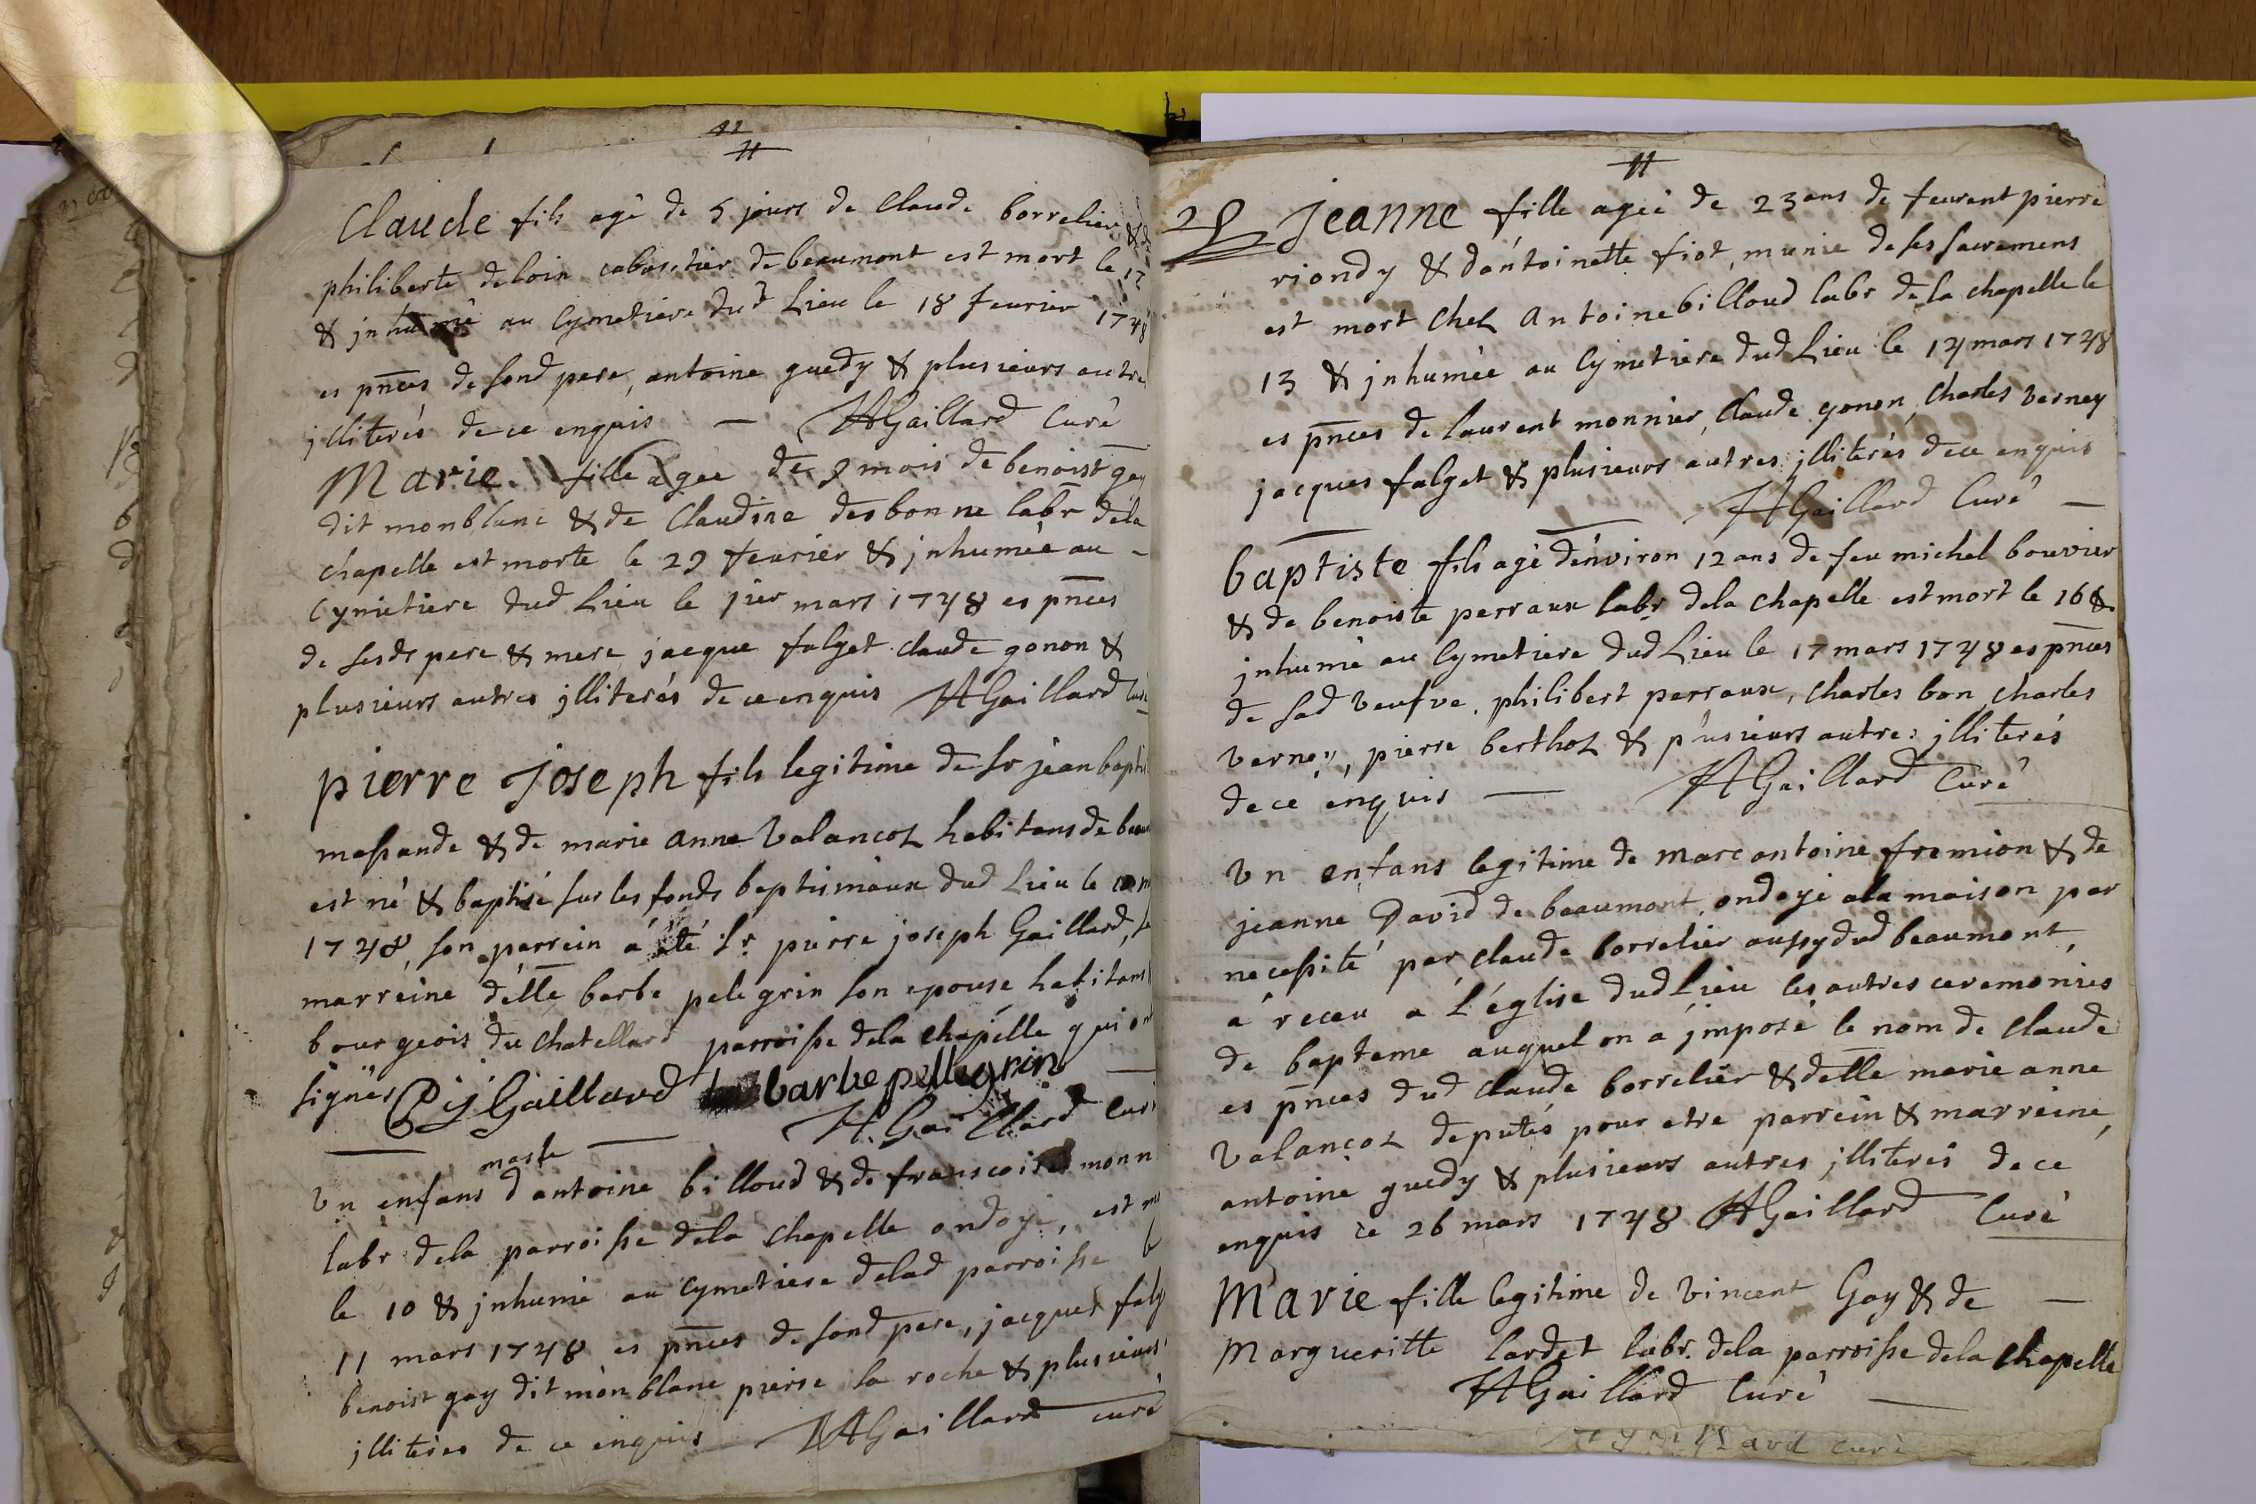 11
Claude fils agé de 5 jours de Claude borrelier & de
philiberte deloin cabartier de beaumont est mort le 17
& jnhumé au Cymetiere dud Lieu le 18 feurier 1748
es pnces de sond pere, antoine guedy & plusieurs autres
jlliterés de ce enquis — HGaillard Curé
Marie fille agee de 9 mois de benoist gay
dit monblanc & de Claudine desbonne labr dela
chapelle est morte le 29 feurier & jnhumée au -
Cymetiere dud Lieu le jier mars 1748 es pnces
de sesds pere & mere jacque falget claude gonon &
plusieurs autres jlliterés de ce enquis HGaillard Curé
pierre Joseph fils legitime de Sr jean bapti
massande & de marie anne Valancot habitans de beau
est né & baptisé sur les fonds baptismaux dud Lieu le
1748, son parrein á été Sr pierre joseph Gaillard, sa
marreine delle barbe pelegrin son epouse habitans
bourgeois du chatellard parroisse dela chapelle qui ont
signés Pj Gaillard barbe pellegrin
H. Gaillard Curé
masle
Vn enfans d antoine billoud & de francoise monn
labr dela parroisse dela Chapelle ondoyé, est mo
le 10 & jnhumé au cymetiere delad parroisse le
11 mars 1748 es pnces de sond pere, jacques falg
benoist gay dit monblanc pierre la roche & plusieurs
jlliteres de ce enquis HGaillard curé
11
Jeanne fille agée de 23 ans de feurent pierre
riondy & d'antoinette fiot, munie de ses sacremens
est mort Chez Antoine billoud labr dela chapelle le
13 & jnhumée au Cymetiere dud Lieu le 14 mars 1748
es pnces de laurent monnier, Claude gonon, Charles Verney
jacques falget & plusieurs autres jlliterés de ce enquis
HGaillard Curé —
baptiste fils agé d'environ 12 ans de feu michel bouvier
& de benoiste perraux labr dela chapelle est mort le 16 &
jnhumé au Cymetiere dud Lieu le 17 mars 1748 es pnces
de sad veufve, philibert perraux, Charles bon, Charles
Verney, pierre berthot & plusieurs autres jlliterés
de ce enquis — HGaillard Curé
Vn enfans legitime de marc antoine fremion & de
jeanne David de beaumont, ondoyé a la maison par
necessité par claude borrelier aussy dud beaumont,
a receu a l'église dud Lieu les autres ceremonies
de bapteme auquel on a jmposé le nom de Claude
es pnces dud Claude borrelier & delle marie anne
Valancot deputés pour etre parrein & marreine,
antoine guedy & plusieurs autres jlliterés de ce
enquis ce 26 mars 1748 HGaillard Curé
Marie fille legitime de Vincent Gay & de —
Margueritte lardet labr. dela parroisse dela Chapelle
HGaillard Curé —